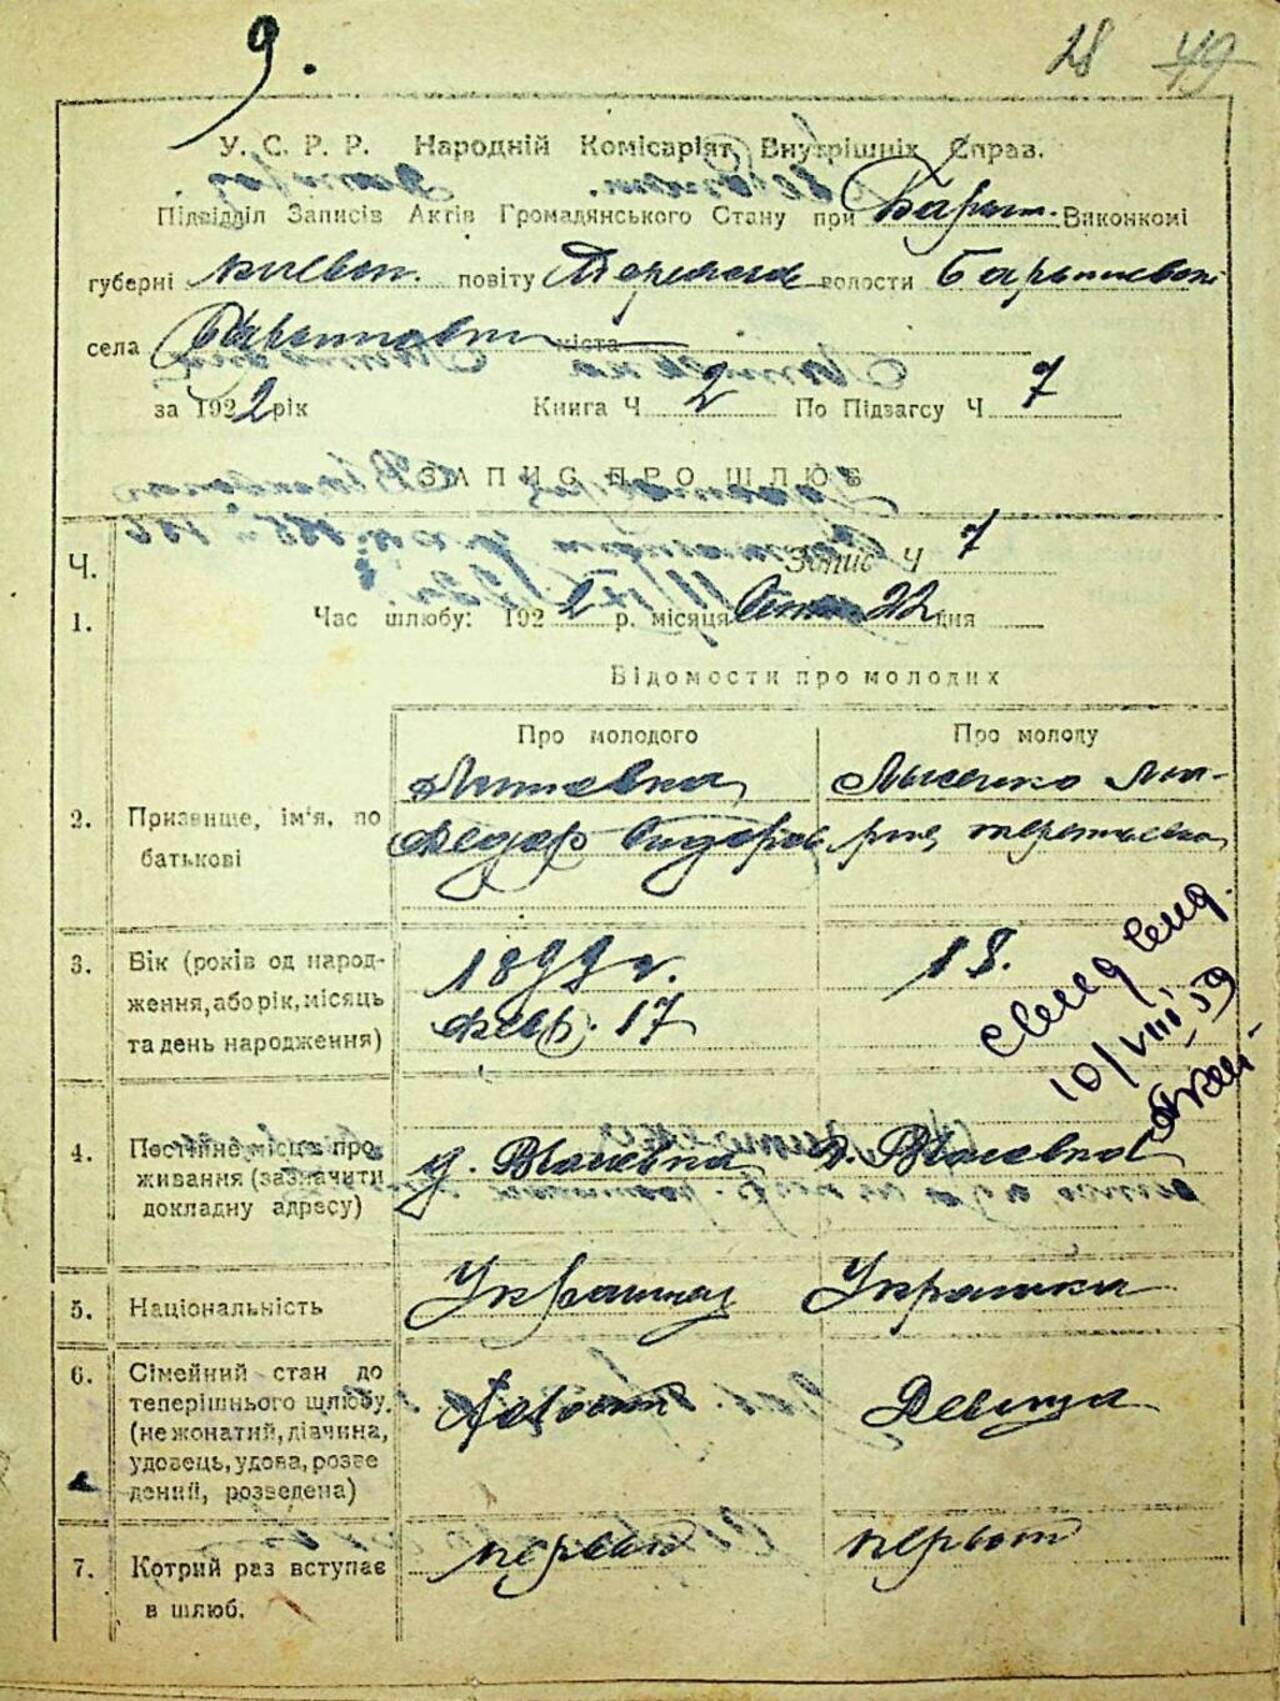 9.
28 49
У. С. Р. Р. Народній Комісаріят Внутрішніх Справ.
Підвідділ Записів Актів Громадянського Стану при Бариш. Виконкомі
губерні Киевск. повіту волости Барышевской
села міста
за 1922 рік Книга Ч. 2 По Підзагсу Ч. 7
ЗАПИС ПРО ШЛЮБ
Запис Ч 7
Ч.
1. Час шлюбу: 1922 р. місяця 22 дня
Відомости про молодих
Про молодого Про молоду
Лысенко Ма-
2. Призвище, ім'я, по
Федор Сидоров рия Терентьевна
батькові
3. Вік (років од народ-
ження, або рік, місяць
та день народження)
1899 г. 18.
Февр. 17
свид
10/VIII 59
4. Постійне місце про-
живання (зазначити
докладну адресу)
д. Власовка д. Власовка
5. Національність Украинец Украинка
6. Сімейний стан до
теперішнього шлюбу.
(не жонатий, дівчина,
удовець, удова, розве
дений, розведена)
Холост Девица
7. Котрий раз вступає
в шлюб.
первый первый